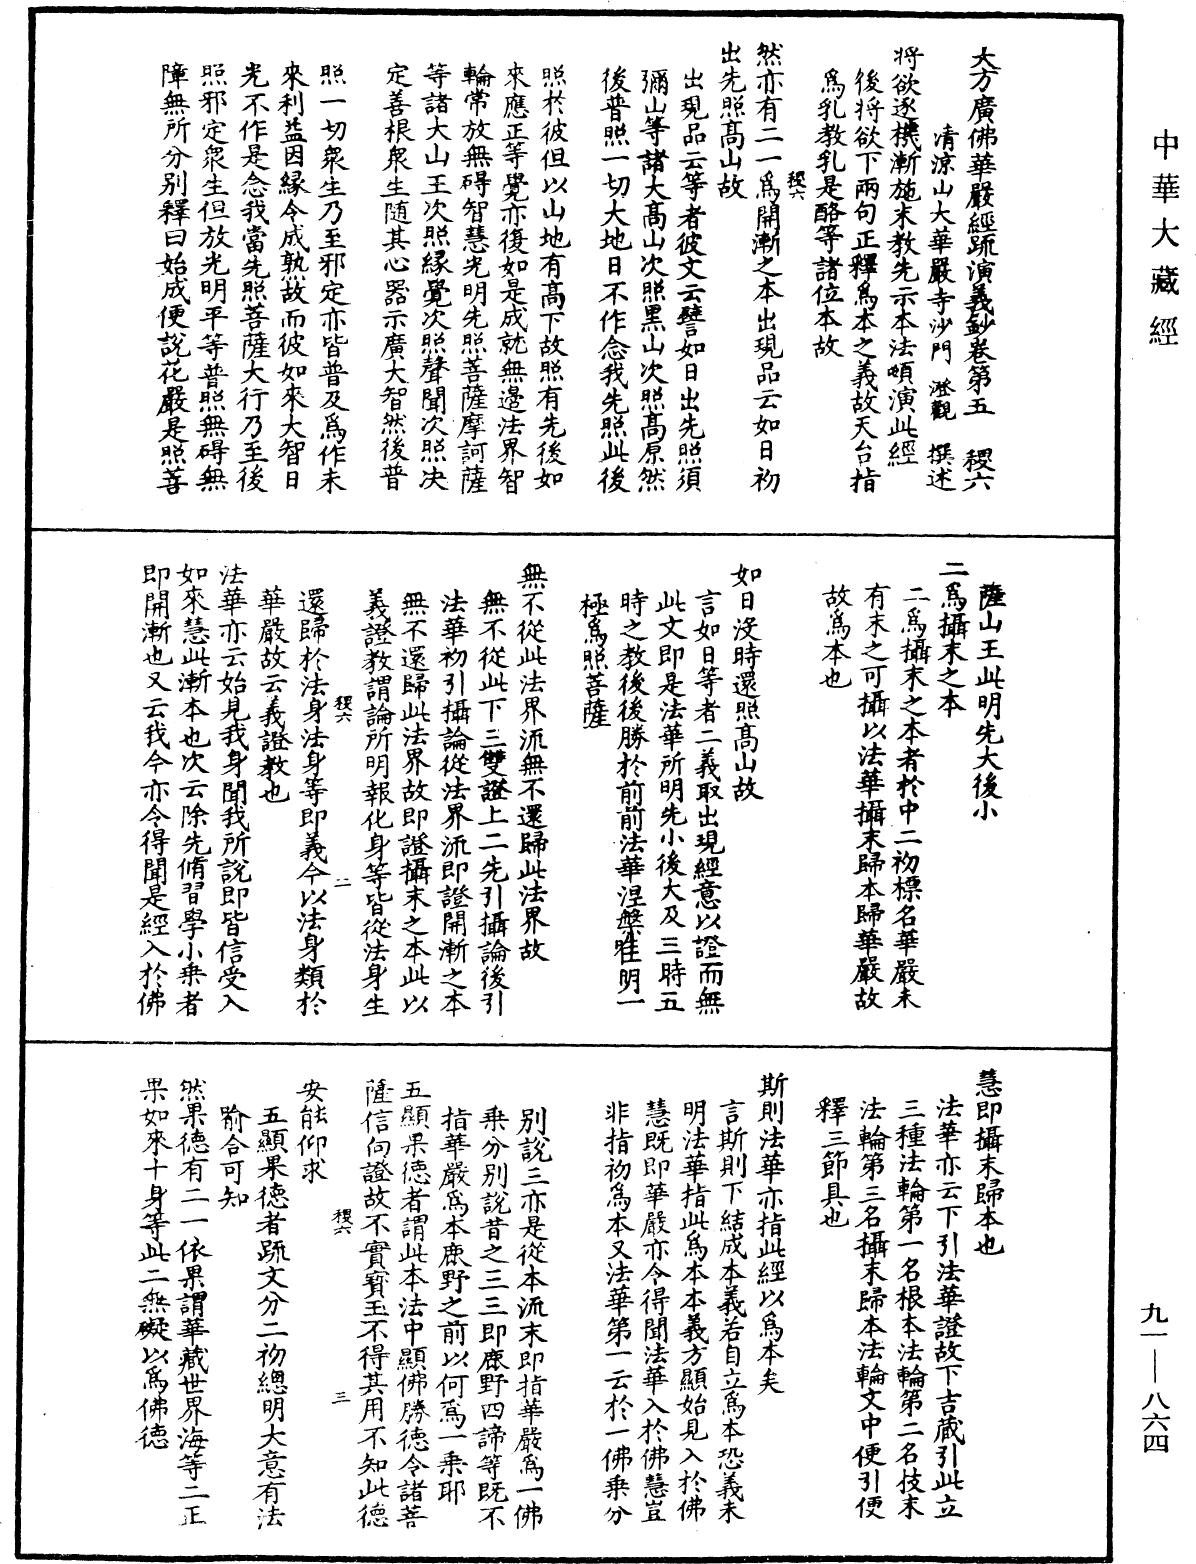 中華大藏經
大方廣佛華嚴經䟽演義鈔卷第五　稷六
清涼山大華嚴寺沙門　澄觀　撰述
將欲逐機漸施末教先示本法頓演此經
後將欲下兩句正釋爲本之義故天台指
爲乳教乳是酪等諸位本故
稷六
然亦有二一爲開漸之本出現品云如日初
出先照髙山故
出現品云等者彼文云譬如日出先照須
彌山等諸大髙山次照黑山次照髙原然
後普照一切大地日不作念我先照此後
照於彼但以山地有髙下故照有先後如
來應正等覺亦復如是成就無邉法界智
輪常放無碍智慧光明先照菩薩摩訶薩
等諸大山王次照緣覺次照聲聞次照决
定善根衆生随其心器示廣大智然後普
照一切衆生乃至邪定亦皆普及爲作未
來利益因緣令成熟故而彼如來大智日
光不作是念我當先照菩薩大行乃至後
照邪定衆生但放光明平等普照無碍無
障無所分别釋曰始成便說花嚴是照菩
薩山王此明先大後小
二爲攝末之本
二爲攝末之本者於中二初標名華嚴未
有末之可攝以法華攝末歸本歸華嚴故
故爲本也
如日没時還照髙山故
言如日等者二義取出現經意以證而無
此文即是法華所明先小後大及三時五
時之教後後勝於前前法華涅槃唯明一
極爲照菩薩
無不從此法界流無不還歸此法界故
無不從此下三雙證上二先引攝論後引
法華初引攝論從法界流即證開漸之本
無不還歸此法界故即證攝末之本此以
義證教謂論所明報化身等皆從法身生
稷六　二
還歸於法身法身等即義今以法身類於
華嚴故云義證教也
法華亦云始見我身聞我所說即皆信受入
如來慧此漸本也次云除先脩習學小乘者
即開漸也又云我今亦令得聞是經入於佛
慧即攝末歸本也
法華亦云下引法華證故下吉蔵引此立
三種法輪第一名根本法輪第二名技末
法輪第三名攝末歸本法輪文中便引便
釋三節具也
斯則法華亦指此經以爲本矣
言斯則下結成本義若自立爲本恐義未
明法華指此爲本本義方顯始見入於佛
慧既即華嚴亦令得聞法華入於佛慧豈
非指初爲本又法華第一云於一佛乘分
别說三亦是從本流末即指華嚴爲一佛
乘分别說昔之三三即鹿野四諦等既不
指華嚴爲本鹿野之前以何爲一乘耶
五顯果徳者謂此本法中顯佛勝徳令諸菩
薩信向證故不實寳玉不得其用不知此徳
稷六　三
安能仰求
五顯果徳者䟽文分二初緫明大意有法
喻合可知
然果徳有二一依果謂華藏世界海等二正
果如來十身等此二無礙以爲佛徳
九一——八六四